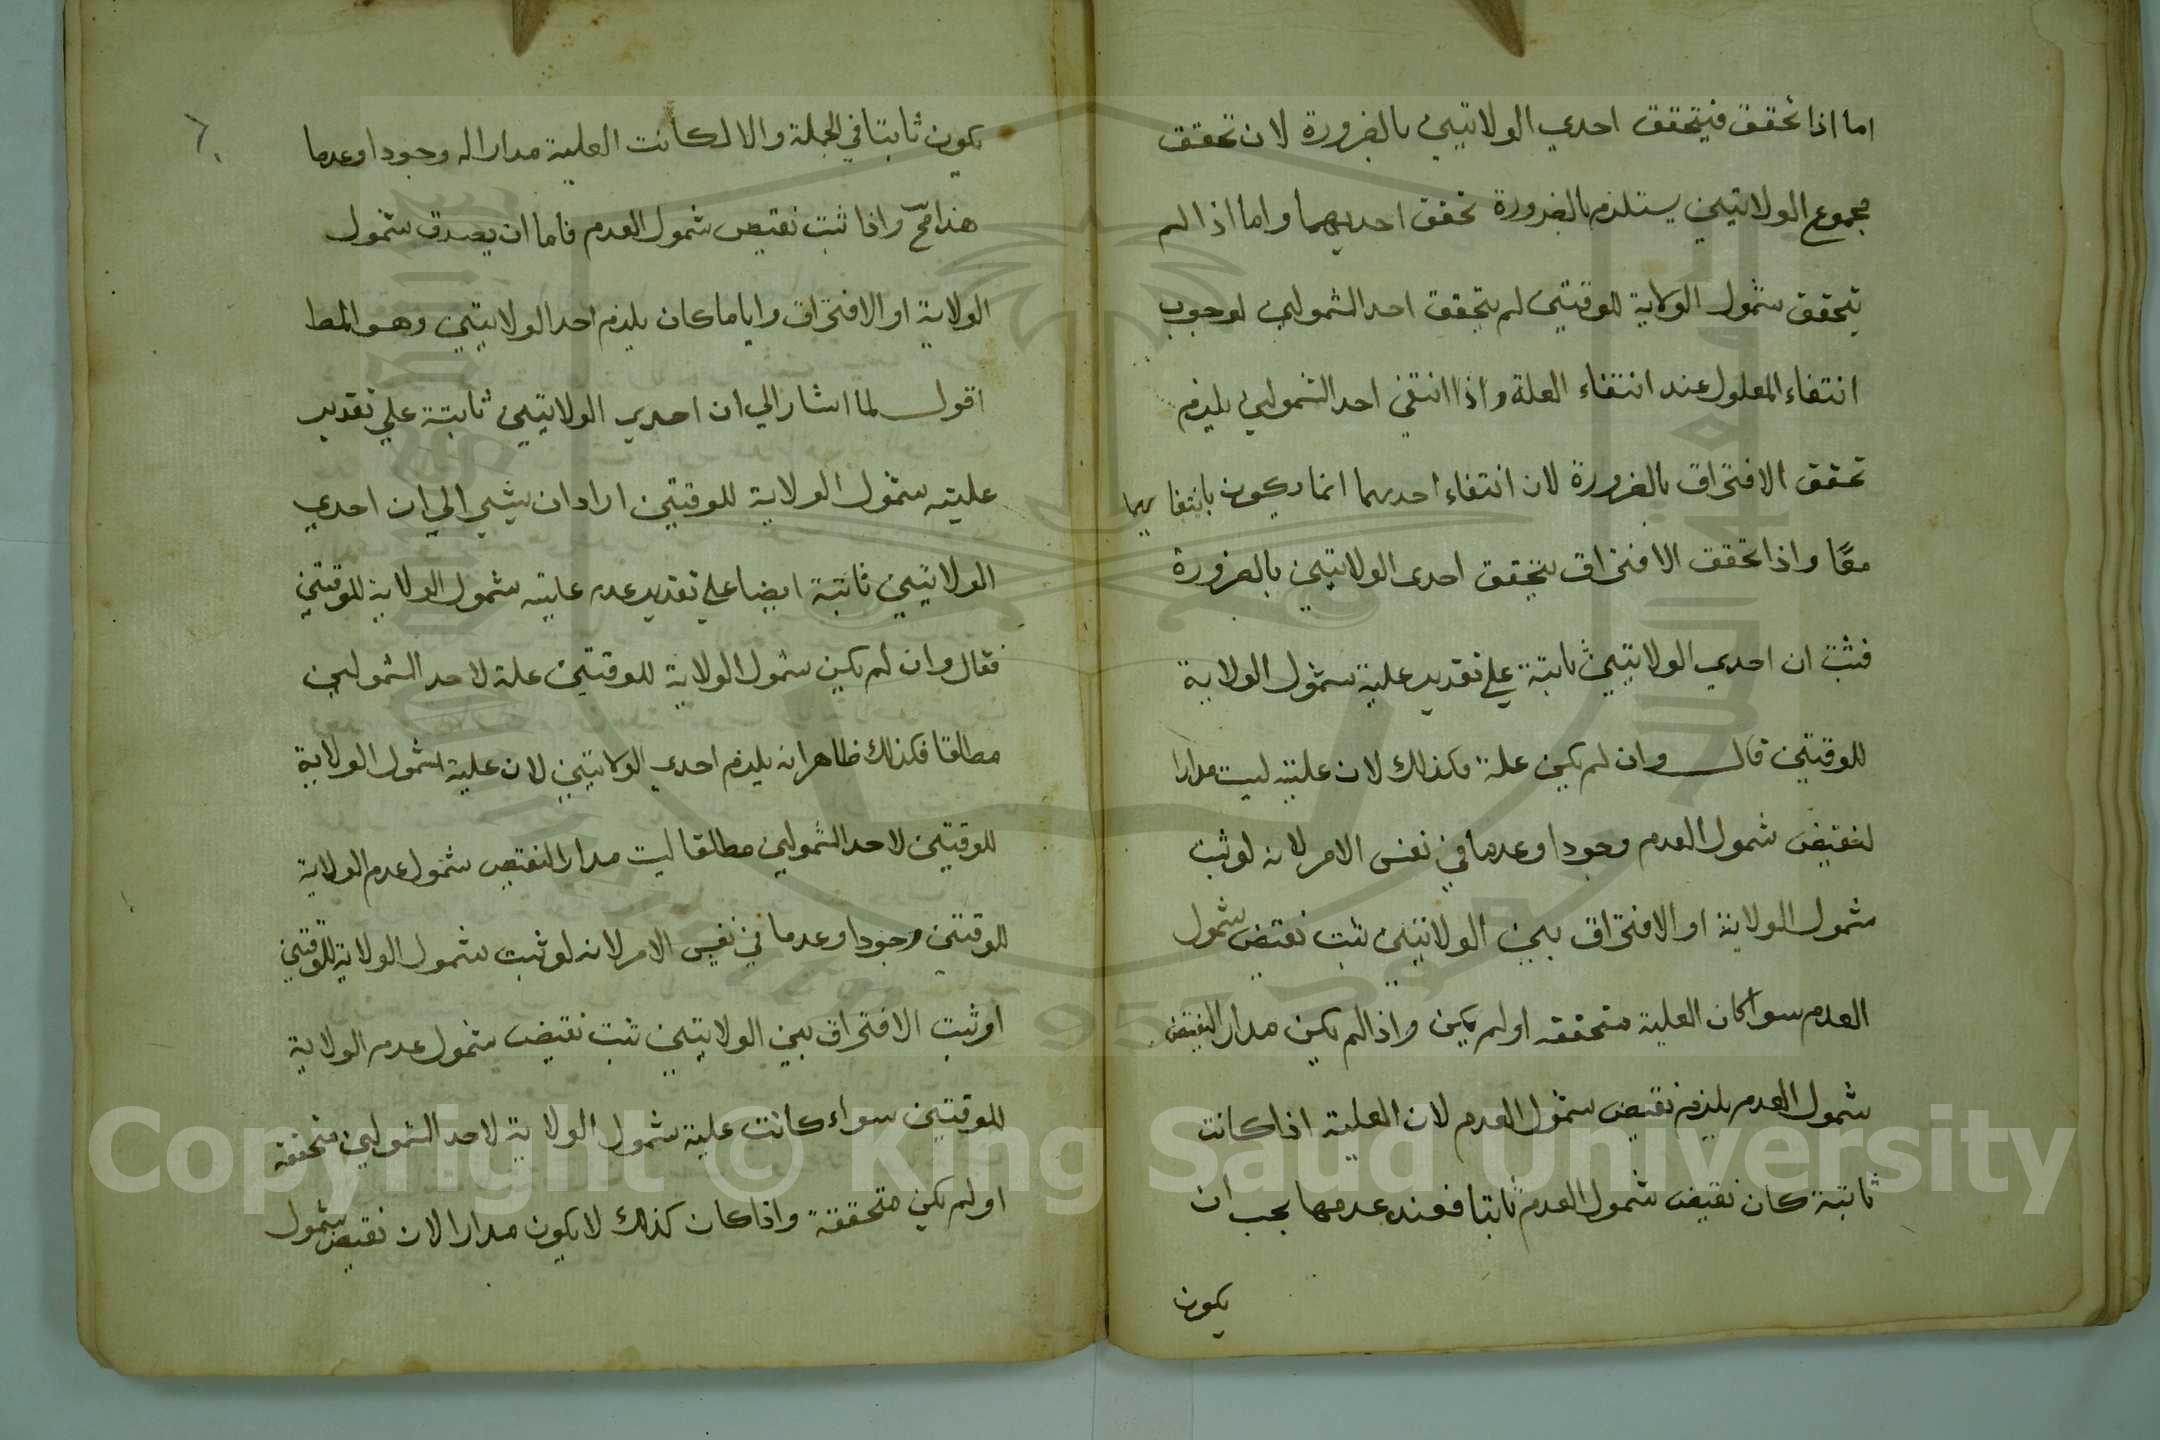 اما اذا تحقق فيتحقق احدي الولايتين بالضرورة لان تحقق
مجموع الولايتين يستلزم بالضرورة تحقق احديهما واما اذا لم
يتحقق شمول الولاية للوقتين لم يتحقق احد الشمولين لوجوب
انتفاء المعلول عند انتفاء العلة واذا انتفي احد الشمولين يلزم
تحقق الافتراق بالضرورة لان انتفاء احديهما انما يكون بانتفايهما
معًا واذا تحقق الافتراق يتحقق احدى الولايتين بالضرورة
فثبت ان احدي الولايتين ثابتة علي تقدير علية شمول الولاية
للوقتين قال وان لم يكن علة فكذلك لان عليته ليست مدارا
لنقيض شمول العدم وجودا وعدما في نفس الامر لانه لو ثبت
شمول الولاية او الافتراق بين الولايتين ثبت نقيض شمول
العدم سوا كان العلية متحققه او لم يكن واذا لم يكن مدارا لنقيض
شمول العدم يلزم نقيض شمول العدم لان العلية اذا كانت
ثابتة كان نقيض شمول العدم ثابتا فعند عدمها يجب ان
يكون
يكون ثابتا في الجملة والا لكانت العلية مدارا له وجودا وعدما
هذا مح واذا ثبت نقيض شمول العدم فاما ان يصدق شمول
الولاية او الافتراق واياما كان يلزم احد الولايتين وهو المط
اقول لما اشار الي ان احدي الولايتين ثابتة علي تقدير
عليته شمول الولاية للوقتين اراد ان يشير الي ان احدي
الولايتين ثابتة ايضا علي تقدير عدم عليته شمول الولاية للوقتين
فقال وان لم يكن شمول الولاية للوقتين علة لاحد الشمولين
مطلقا فكذلك ظاهر انه يلزم احدي الولايتين لان علية شمول الولاية
للوقتين لاحد الشمولين مطلقا ليست مدارا لنقيض شمول عدم الولاية
للوقتين وجودا وعدما في نفس الامر لانه لو ثبت شمول الولاية للوقتين
او ثبت الافتراق بين الولايتين ثبت نقيض شمول عدم الولاية
للوقتين سواء كانت علية شمول الولاية لاحد الشمولين متحققة
او لم يكن متحققة واذا كان كذلك لا يكون مدارا لان نقيض شمول
Copyright © King Saud University
1957